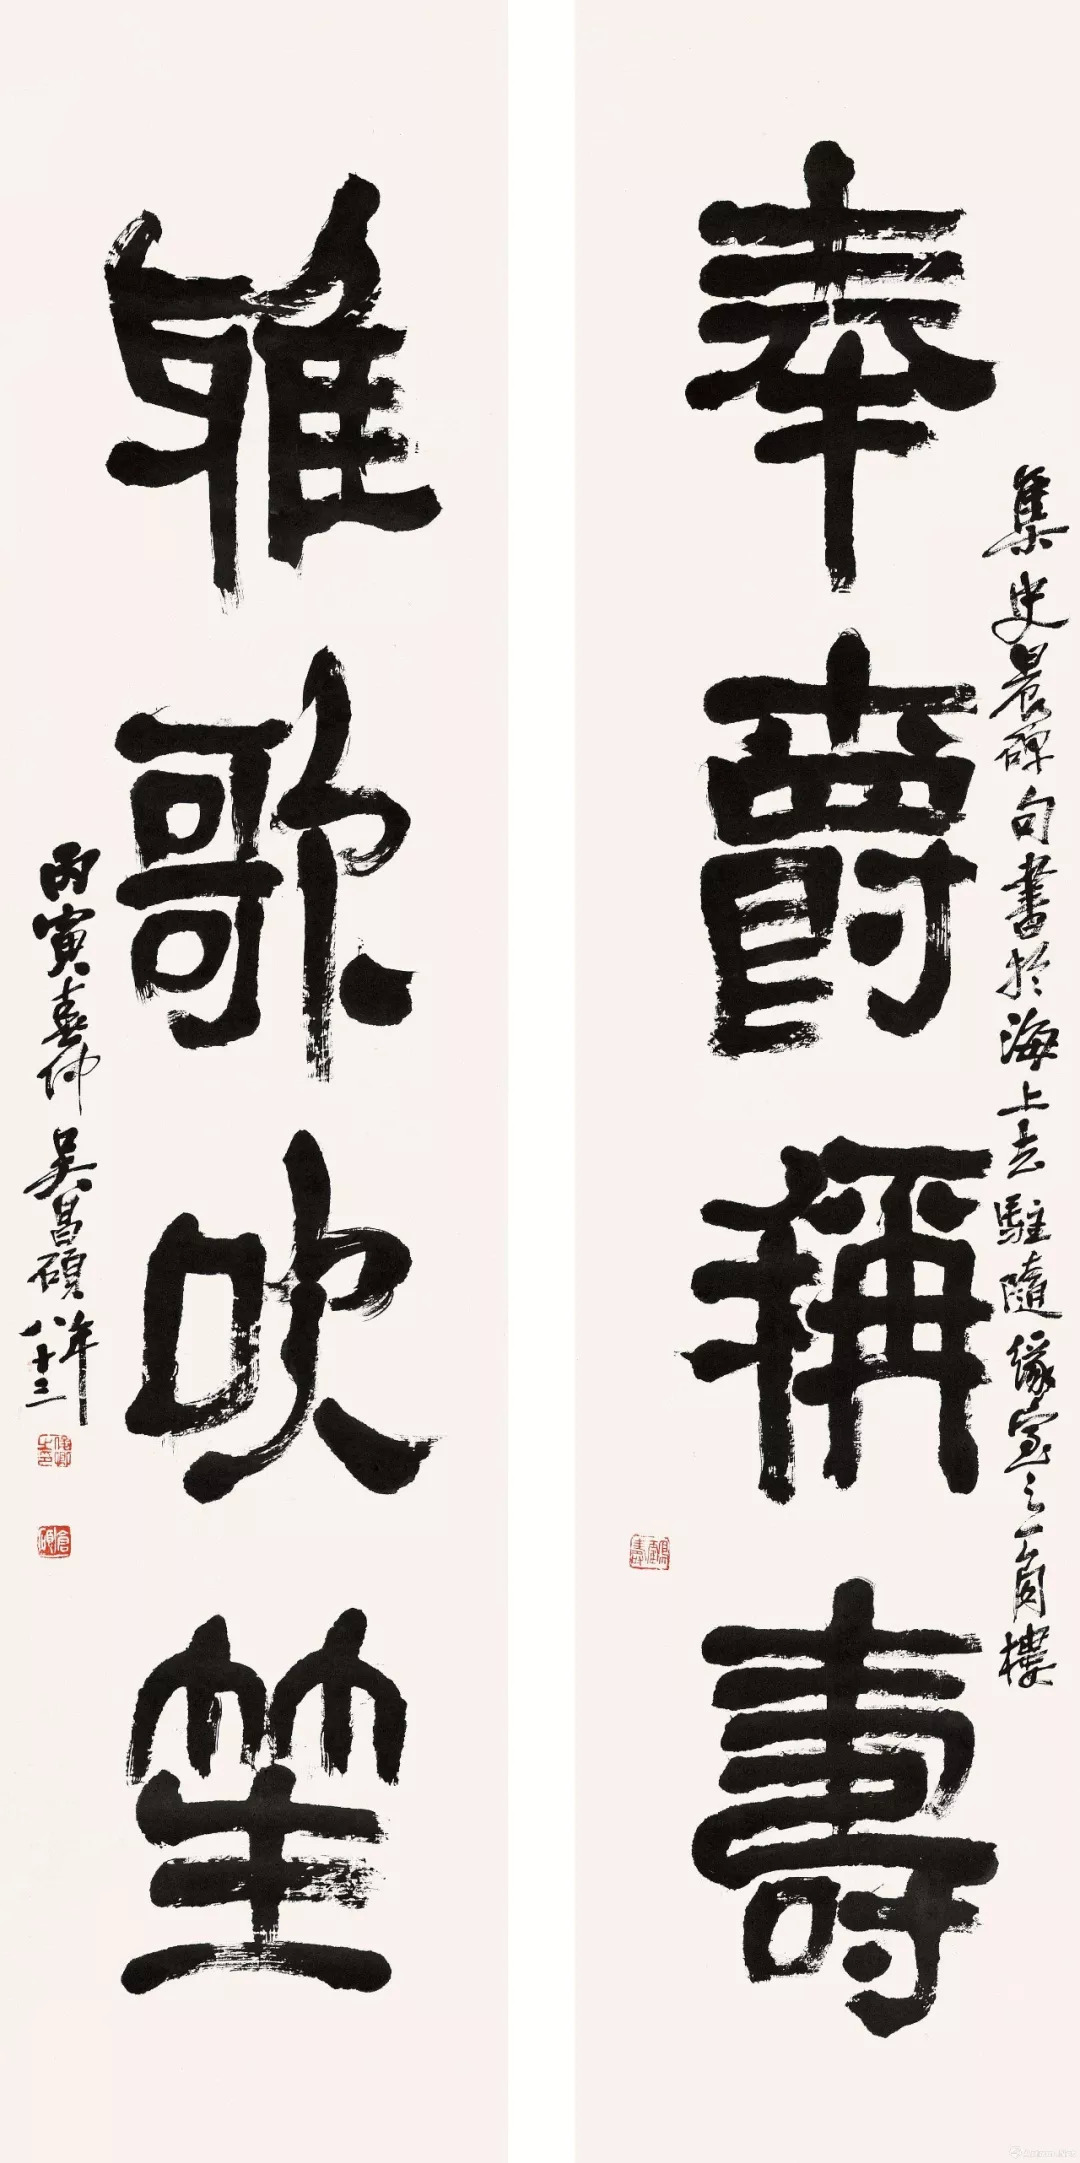 奉爵稱壽
集史晨碑句書於海上去駐隨緣室之一角樓
雅歌吹笙
丙寅春仲吳昌碩年
八十三